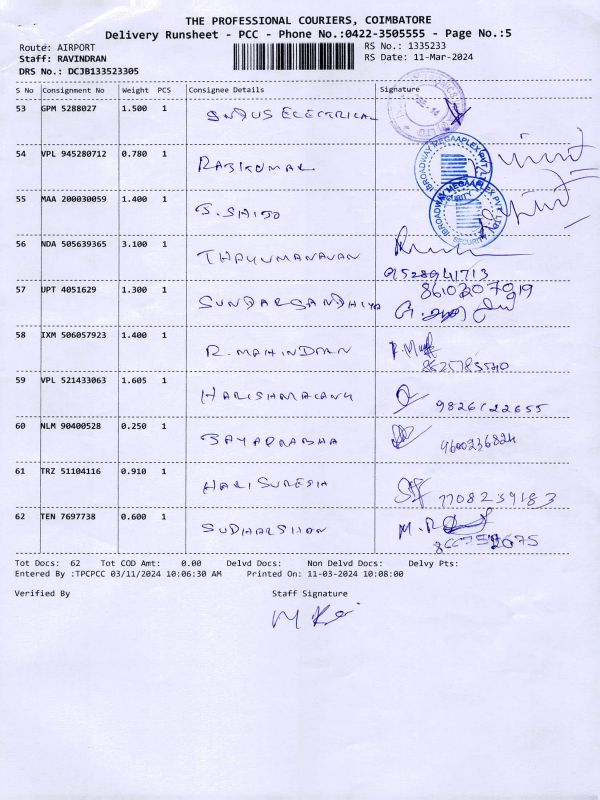 THE PROFESSIONAL COURIERS, COIMBATORE
Delivery Runsheet - PCC - Phone No.:0422-3505555 - Page No.:5
Route: AIRPORT RS No.: 1335233
Staff: RAVINDRAN RS Date: 11-Mar-2024
DRS No.: DCJB133523305
S No Consignment No Weight PCS Consignee Details Signature
53 GPM 5288027 1.500 1 INDUS ELECTRICAL
54 VPL 945280712 0.780 1 RAJKUMAR
BROADWAY MEGAAPLEX PVT LTD
SECURITY
55 MAA 200030059 1.400 1 S. SHIJO
BROADWAY MEGAAPLEX PVT LTD
SECURITY
56 NDA 505639365 3.100 1 THAYUMANAVAN
9528941713
57 UPT 4051629 1.300 1 SUNDARGANDHIYA 8610207019
58 IXM 506057923 1.400 1 R. MAHINDRAN
59 VPL 521433063 1.605 1
60 NLM 90400528 0.250 1 JAYAPRABHA 9600236824
61 TRZ 51104116 0.910 1 HARI SURESH 7708239183
62 TEN 7697738 0.600 1 SUDHARSHON
Tot Docs: 62 Tot COD Amt: 0.00 Delvd Docs: Non Delvd Docs: Delvy Pts:
Entered By :TPCPCC 03/11/2024 10:06:30 AM Printed On: 11-03-2024 10:08:00
Verified By Staff Signature